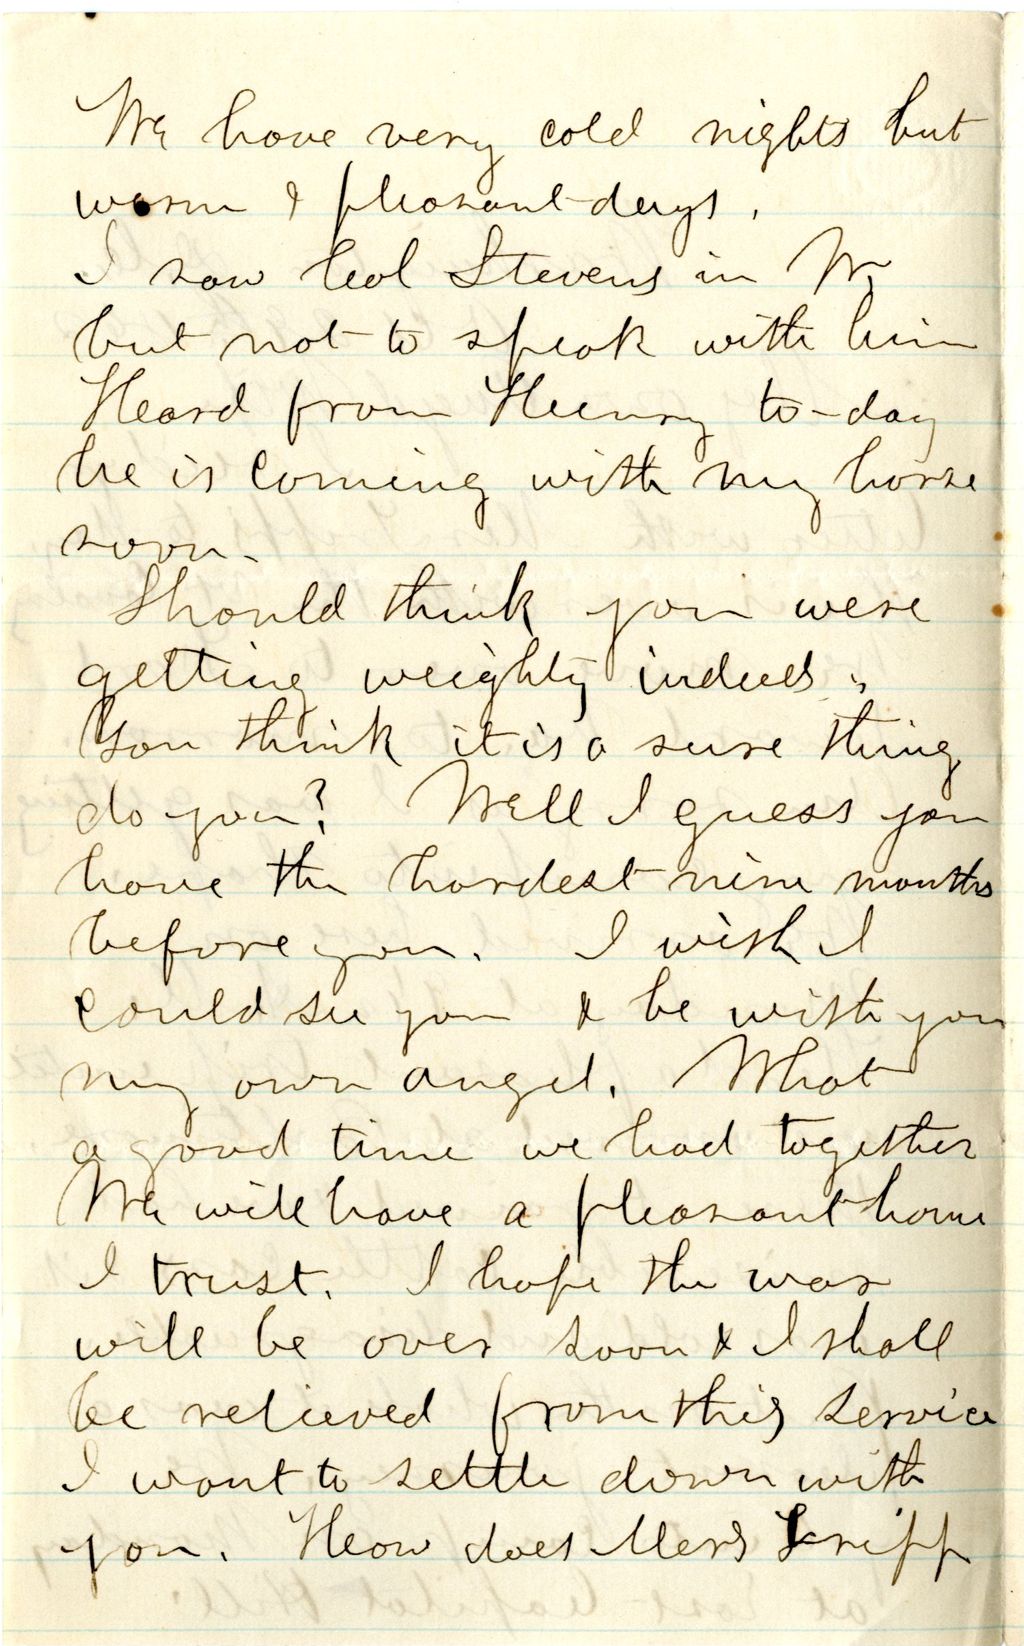 We have very cold nights but
warm & pleasant days.
I saw Col Stevens in W
but not to speak with him
Heard from Henry to-day
he is coming with my horse
soon.
Should think you were
getting weighty indeed.
You think it is a sure thing
do you? Well I guess you
have the hardest nine months
before you. I wish I
could see you & be with you
my own angel. What
a good time we had together
We will have a pleasant home
I trust. I hope the war
will be over soon & I shall
be relieved from this service
I want to settle down with
you. How does Mrs